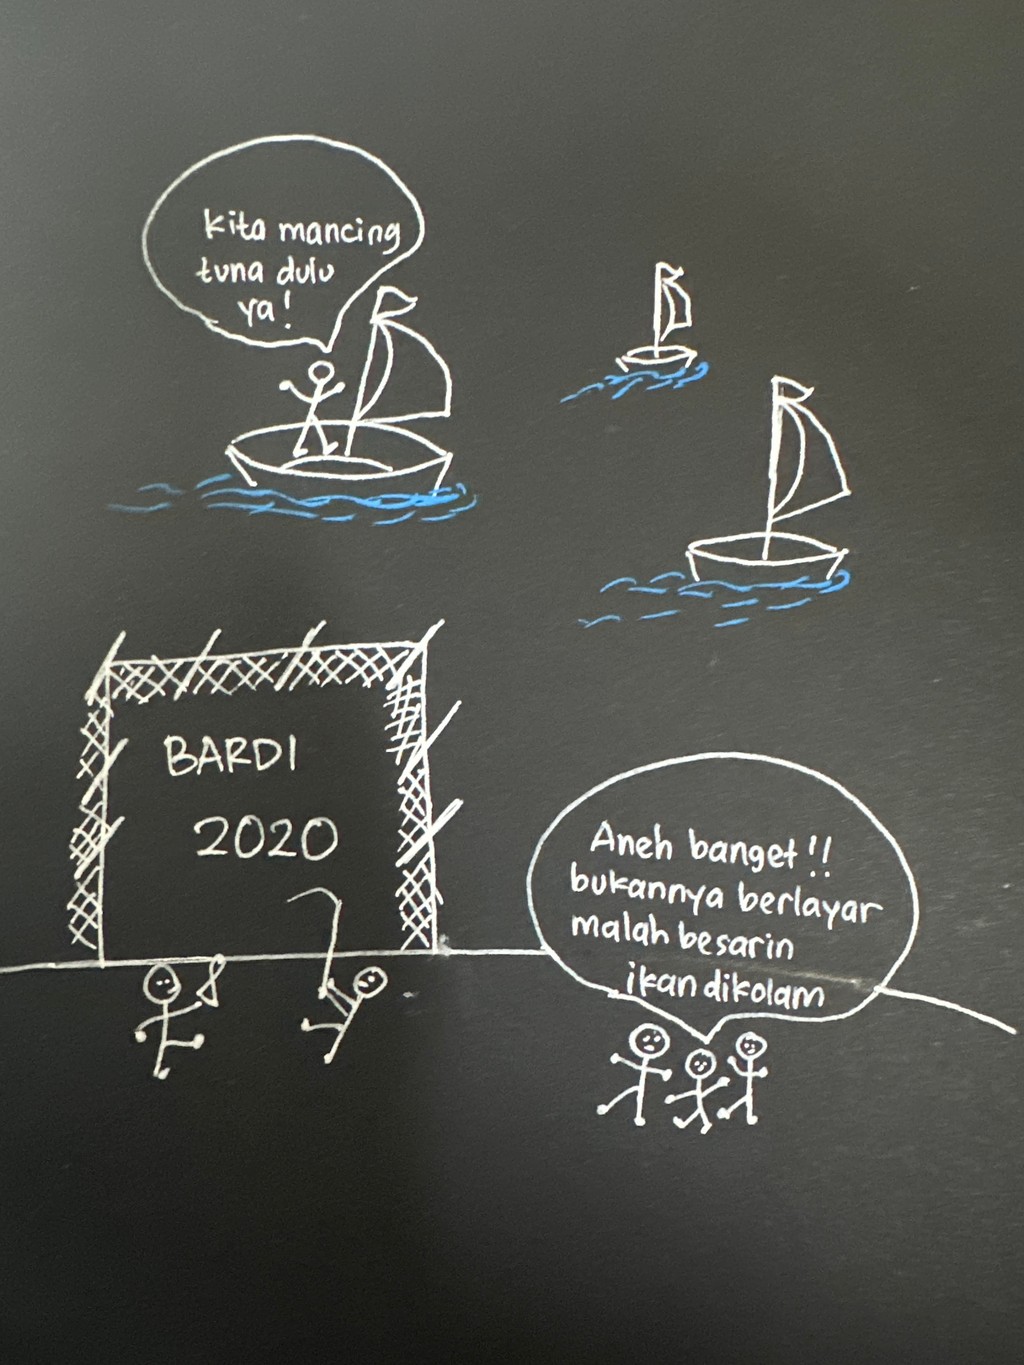 kita mancing
tuna dulu
ya!
BARDI
2020
Aneh banget!!
bukannya berlayar
malah besarin
ikan dikolam